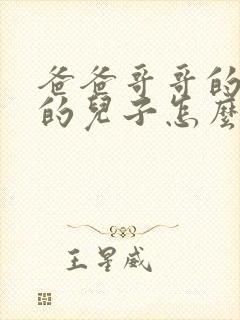 爸爸哥哥的
的兒子怎麼
王星威